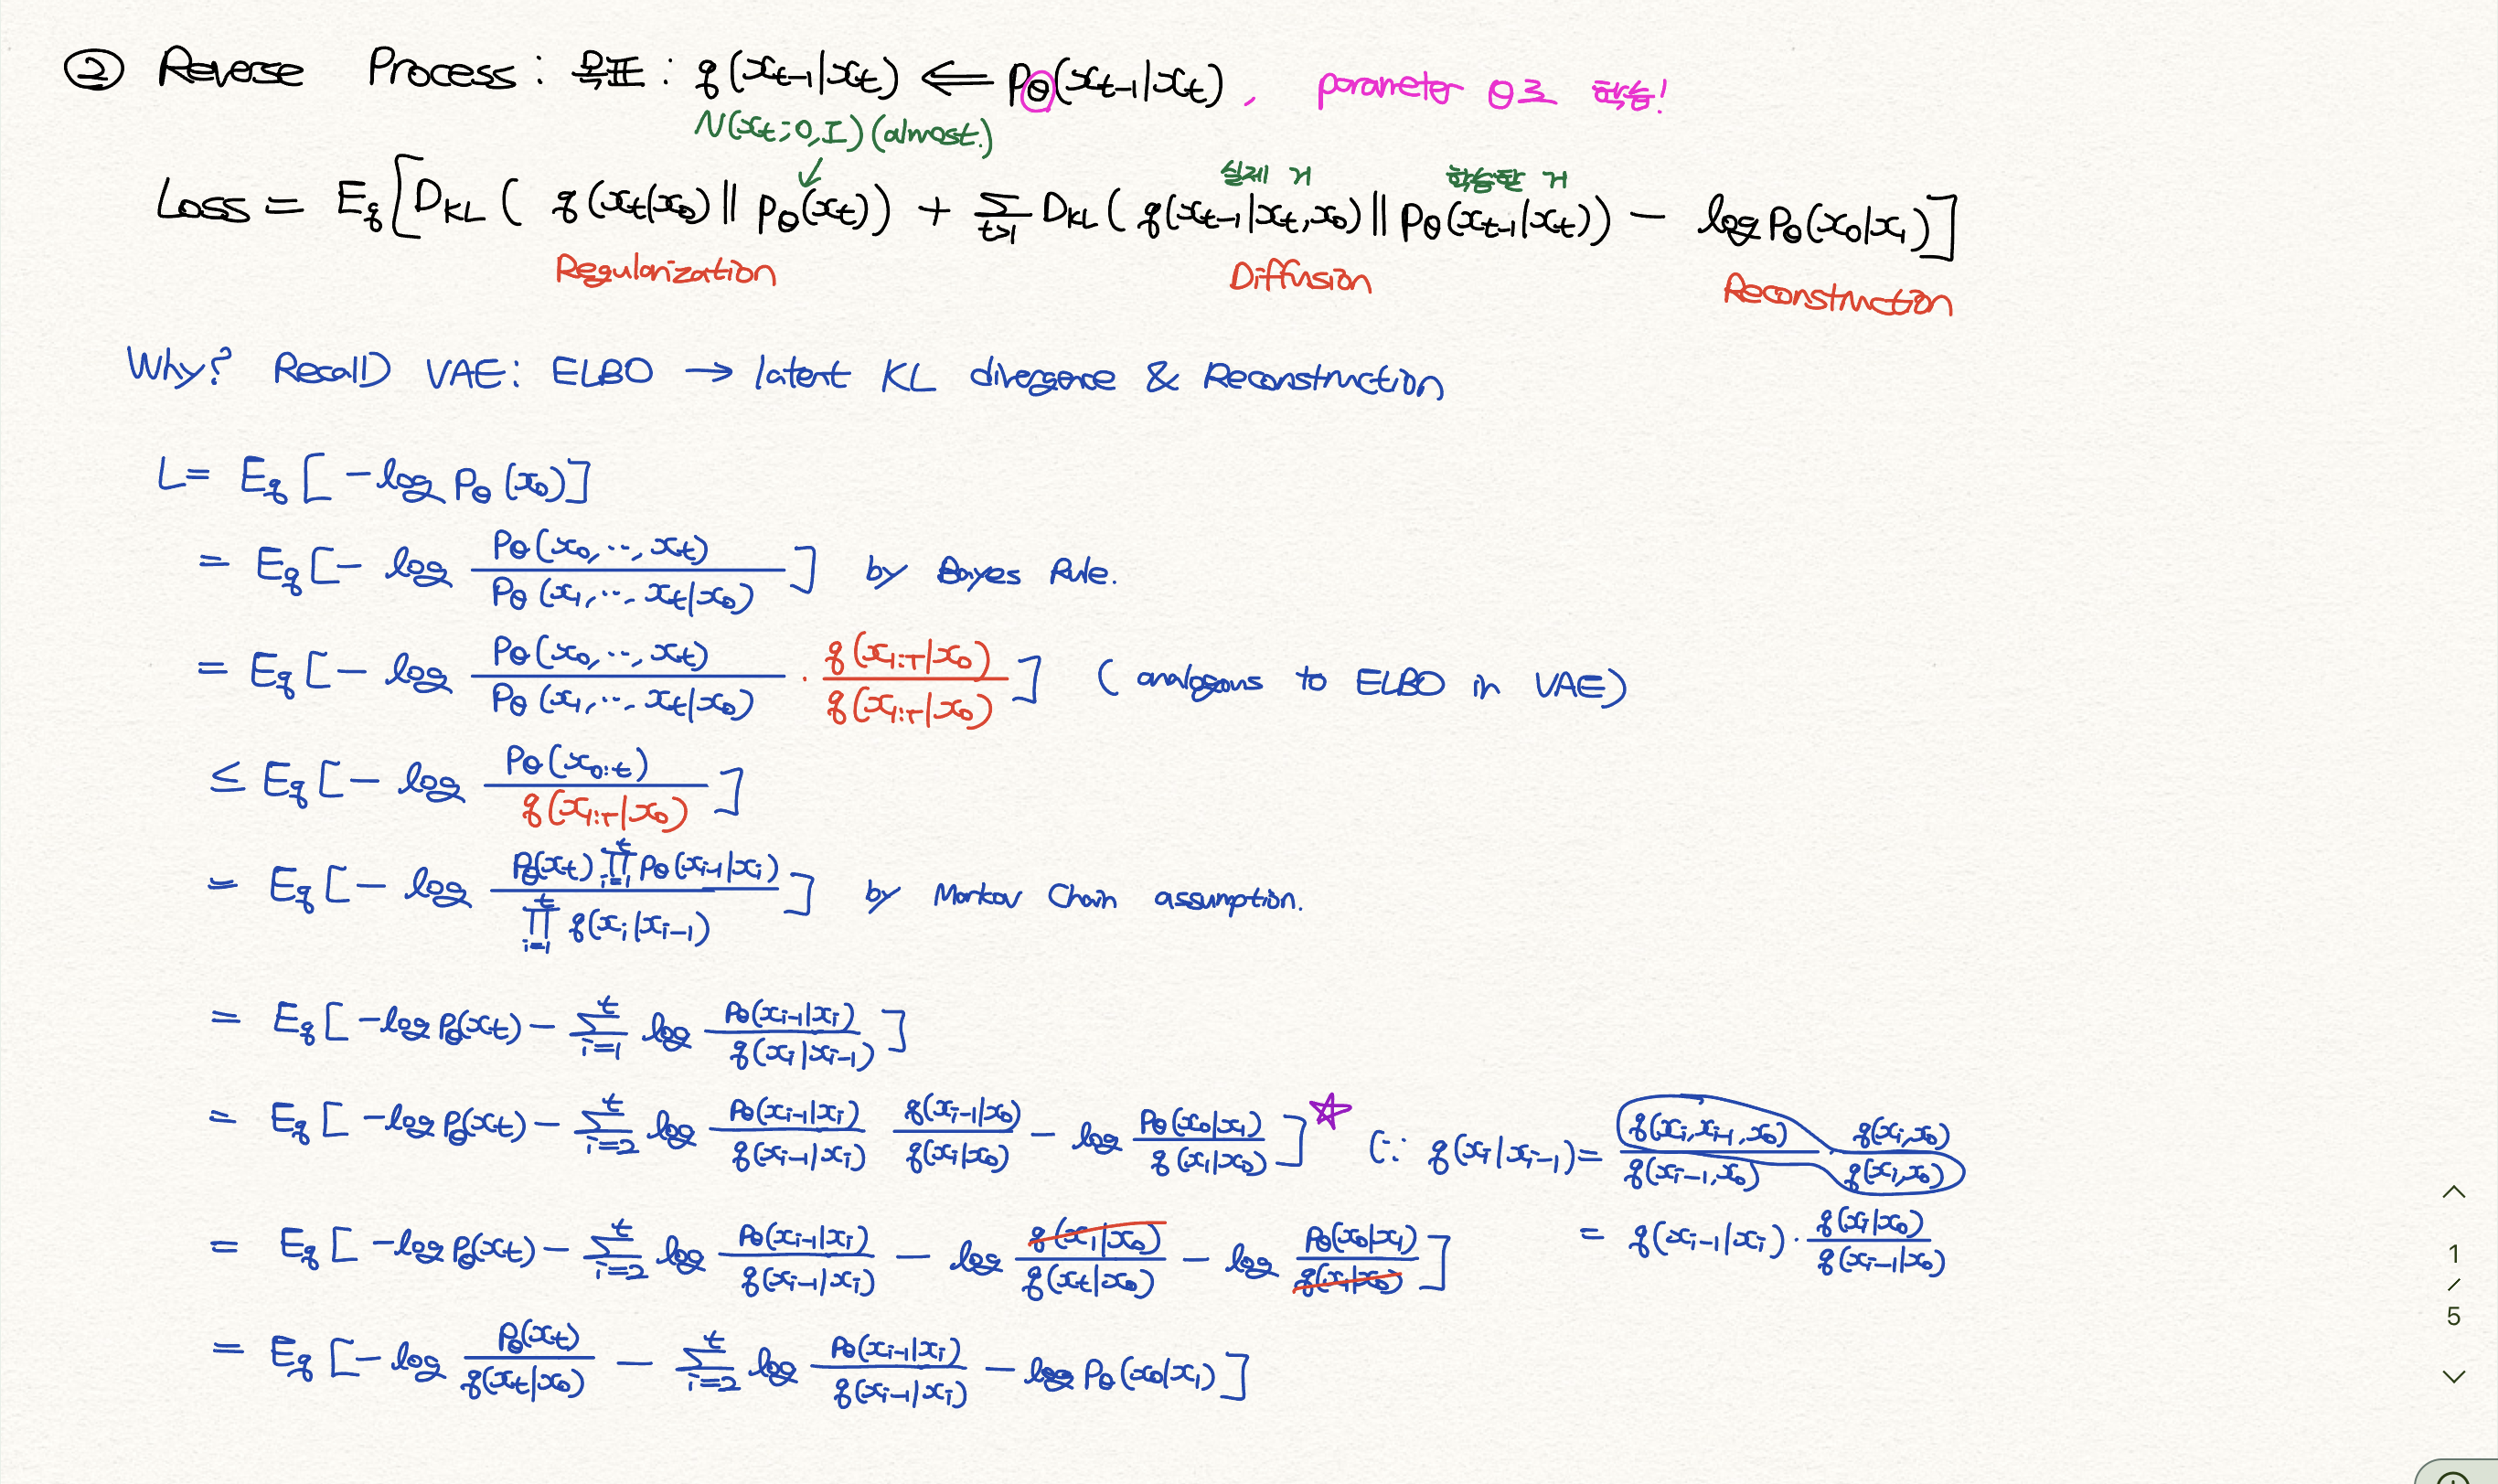 ② Reverse Process : 목표 : q(x_{t-1}|x_t) ⟸ p_θ(x_{t-1}|x_t), parameter θ로 학습!
N(x_t; 0, I) (almost.)
실제 거 학습한 거
Loss = E_q[D_KL( q(x_t|x_0) || p_θ(x_t)) + Σ_{t>1} D_KL( q(x_{t-1}|x_t, x_0) || p_θ(x_{t-1}|x_t)) − log p_θ(x_0|x_1)]
Regularization Diffusion Reconstruction
Why? Recall) VAE: ELBO → latent KL divergence & Reconstruction
L = E_q[ −log p_θ(x_0)]
= E_q[− log p_θ(x_0, ⋯, x_t) / p_θ(x_1, ⋯, x_t|x_0) ] by Bayes Rule.
= E_q[− log p_θ(x_0, ⋯, x_t) / p_θ(x_1, ⋯, x_t|x_0) · q(x_{1:T}|x_0) / q(x_{1:T}|x_0) ] ( analogous to ELBO in VAE)
≤ E_q[− log p_θ(x_{0:t}) / q(x_{1:T}|x_0) ]
= E_q[− log p_θ(x_t) ∏_{i=1}^{t} p_θ(x_{i-1}|x_i) / ∏_{i=1}^{t} q(x_i|x_{i-1}) ] by Markov Chain assumption.
= E_q[ −log p_θ(x_t) − Σ_{i=1}^{t} log p_θ(x_{i-1}|x_i) / q(x_i|x_{i-1}) ]
= E_q[ −log p_θ(x_t) − Σ_{i=2}^{t} log p_θ(x_{i-1}|x_i) / q(x_{i-1}|x_i) q(x_{i-1}|x_0) / q(x_i|x_0) − log p_θ(x_0|x_1) / q(x_1|x_0) ] ☆ (∵ q(x_i|x_{i-1}) = q(x_i, x_{i-1}, x_0) / q(x_{i-1}, x_0) · q(x_i, x_0) / q(x_i, x_0)
= q(x_{i-1}|x_i) · q(x_i|x_0) / q(x_{i-1}|x_0)
= E_q[ −log p_θ(x_t) − Σ_{i=2}^{t} log p_θ(x_{i-1}|x_i) / q(x_{i-1}|x_i) − log q(x_1|x_0) / q(x_t|x_0) − log p_θ(x_0|x_1) / q(x_1|x_0) ]
= E_q[− log p_θ(x_t) / q(x_t|x_0) − Σ_{i=2}^{t} log p_θ(x_{i-1}|x_i) / q(x_{i-1}|x_i) − log p_θ(x_0|x_1) ]
1 / 5